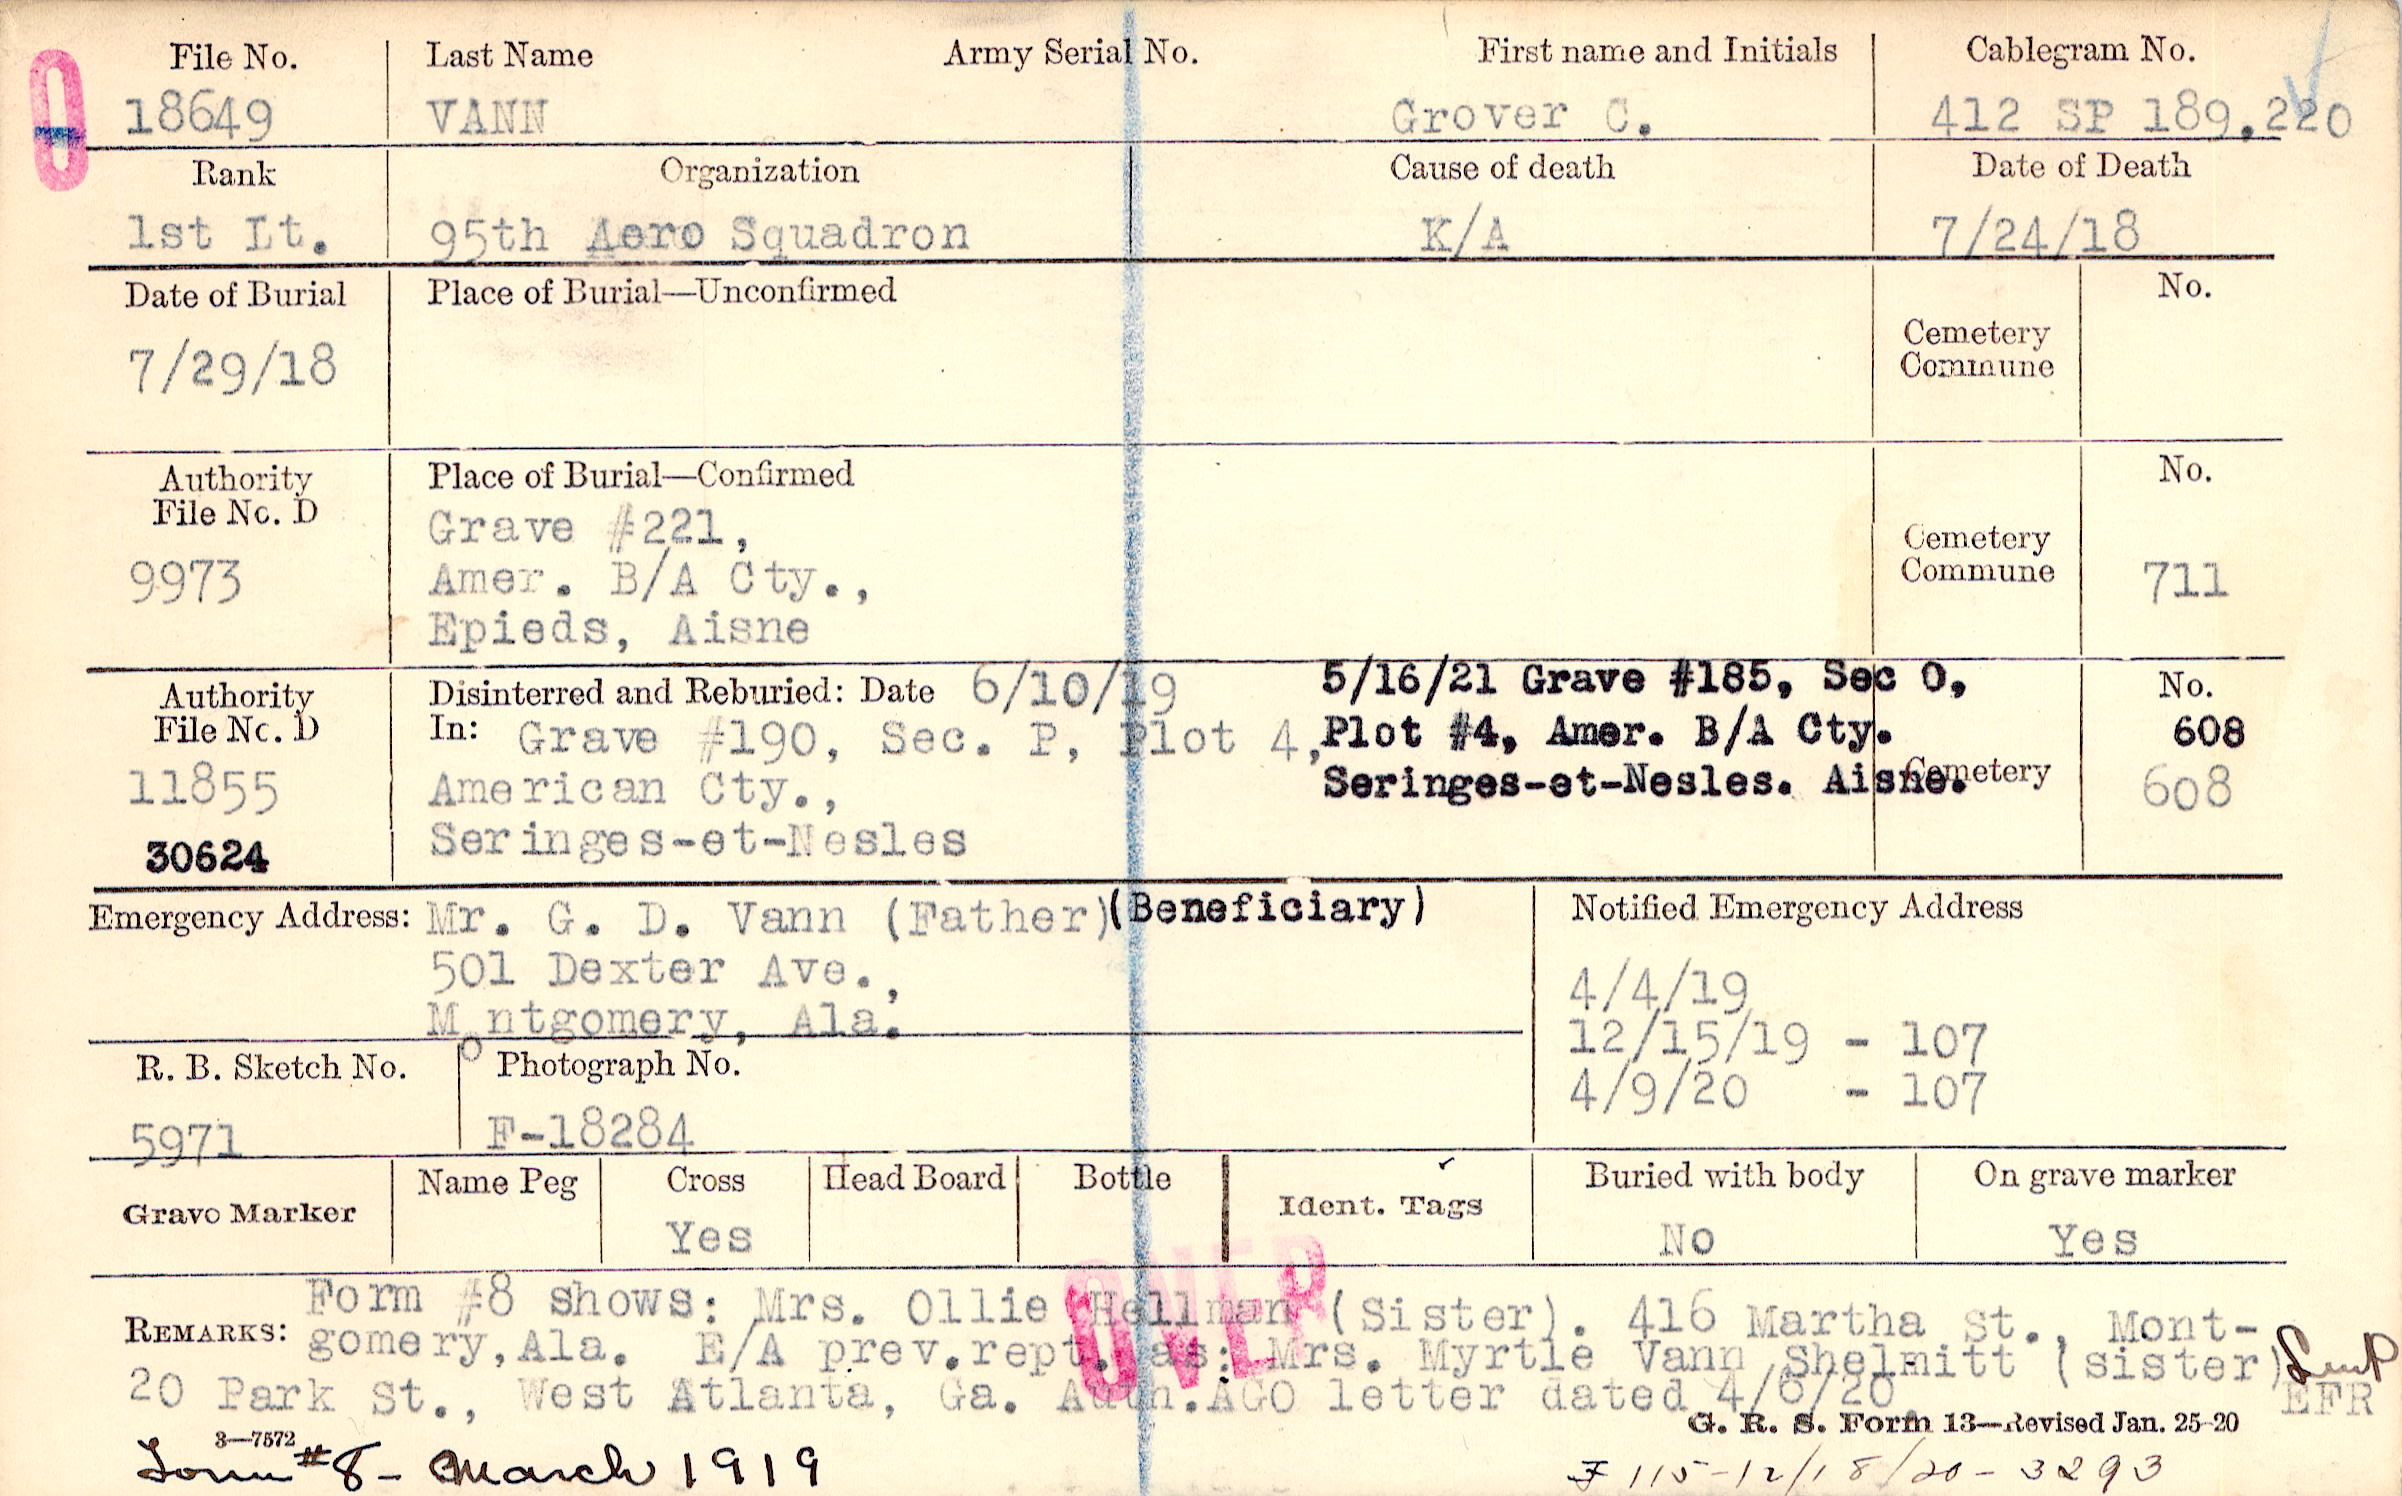 O
File No. Last Name Army Serial No. First name and Initials Cablegram No.
18649 VANN Grover C. 412 SP 189,220
Rank Organization Cause of death Date of Death
1st Lt. 95th Aero Squadron K/A 7/24/18
Date of Burial Place of Burial—Unconfirmed No.
7/29/18
Cemetery
Commune
Authority Place of Burial—Confirmed No.
File No. D
Grave #221,
9973 Amer. B/A Cty., Cemetery
Commune 711
Epieds, Aisne
Authority Disinterred and Reburied: Date 6/10/19 5/16/21 Grave #185, Sec O, No.
File No. D In: Grave #190, Sec. P, Plot 4, Plot #4, Amer. B/A Cty. 608
11855 American Cty., Seringes-et-Nesles. Aisne. Cemetery 608
30624 Seringes-et-Nesles
Emergency Address: Mr. G. D. Vann (Father) (Beneficiary) Notified Emergency Address
501 Dexter Ave., 4/4/19
Montgomery, Ala. 12/15/19 - 107
R. B. Sketch No. Photograph No. 4/9/20 - 107
5971 F-18284
Grave Marker Name Peg Cross Head Board Bottle Ident. Tags Buried with body On grave marker
Yes No Yes
OVER
Form #8 shows: Mrs. Ollie Hellman (Sister). 416 Martha St., Mont-
REMARKS: gomery, Ala. E/A prev.rept. as: Mrs. Myrtle Vann Shelmitt (sister)
20 Park St., West Atlanta, Ga. Auth.AGO letter dated 4/6/20. EFR
3—7572 G. R. S. Form 13—Revised Jan. 25-20
Form #8 - March 1919 115-12/18/20-3293